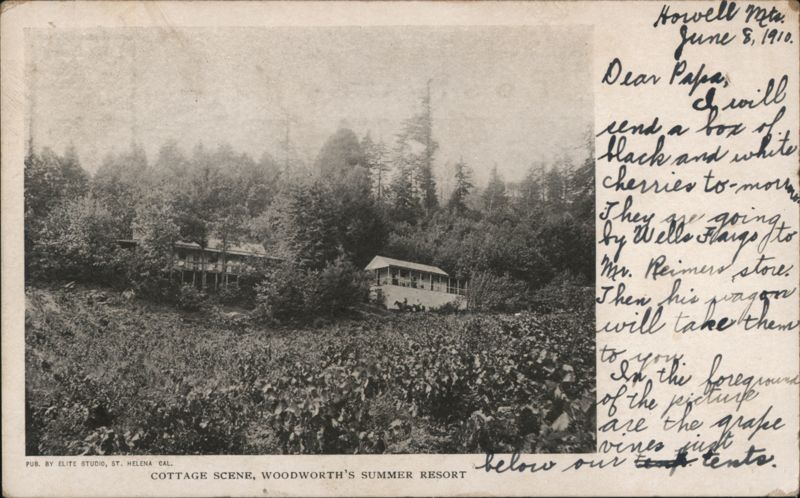 Howell Mts.
June 8, 1910.
Dear Papa,
I will
send a box of
black and white
cherries to-morrow
They are going
by Wells Fargo to
Mr. Reimers store.
Then his wagon
will take them
to you.
In the foreground
of the picture
are the grape
vines just
below our tents.
PUB. BY ELITE STUDIO, ST. HELENA CAL.
COTTAGE SCENE, WOODWORTH'S SUMMER RESORT